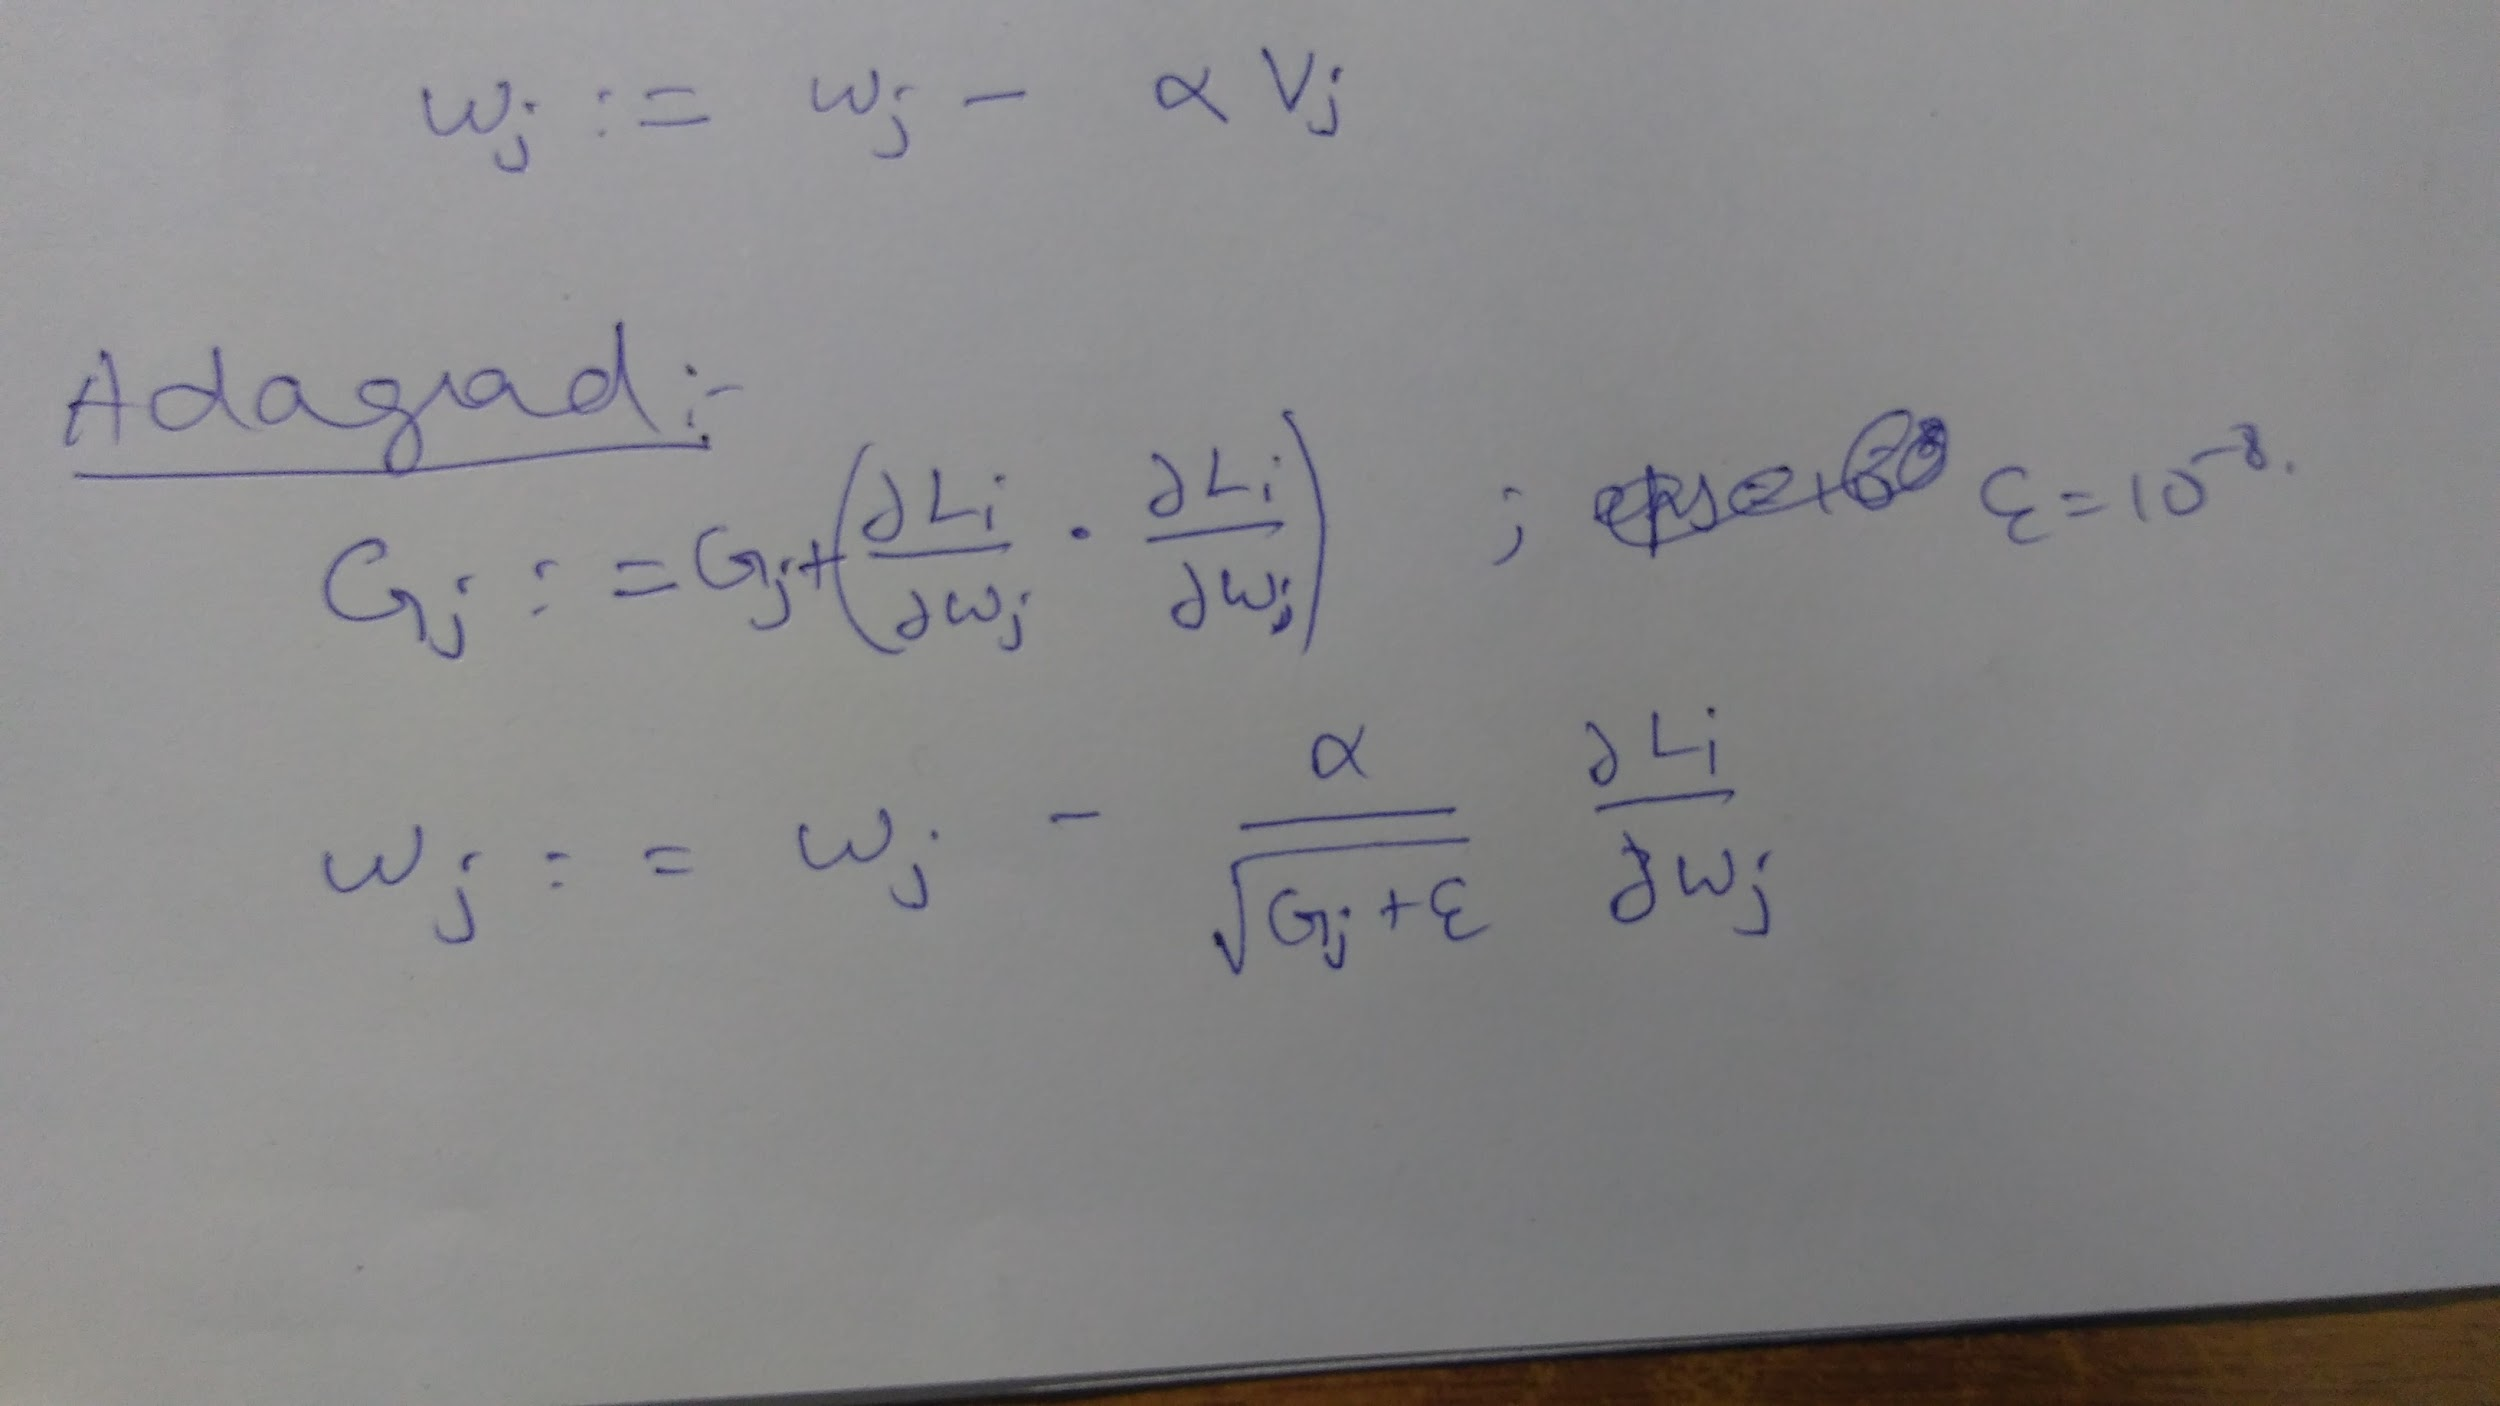 wj := wj - α Vj
Adagrad :-
Gj := Gj + (∂Li/∂wj · ∂Li/∂wj) ; ε = 10^-8.
wj := wj - α/√(Gj + ε) ∂Li/∂wj